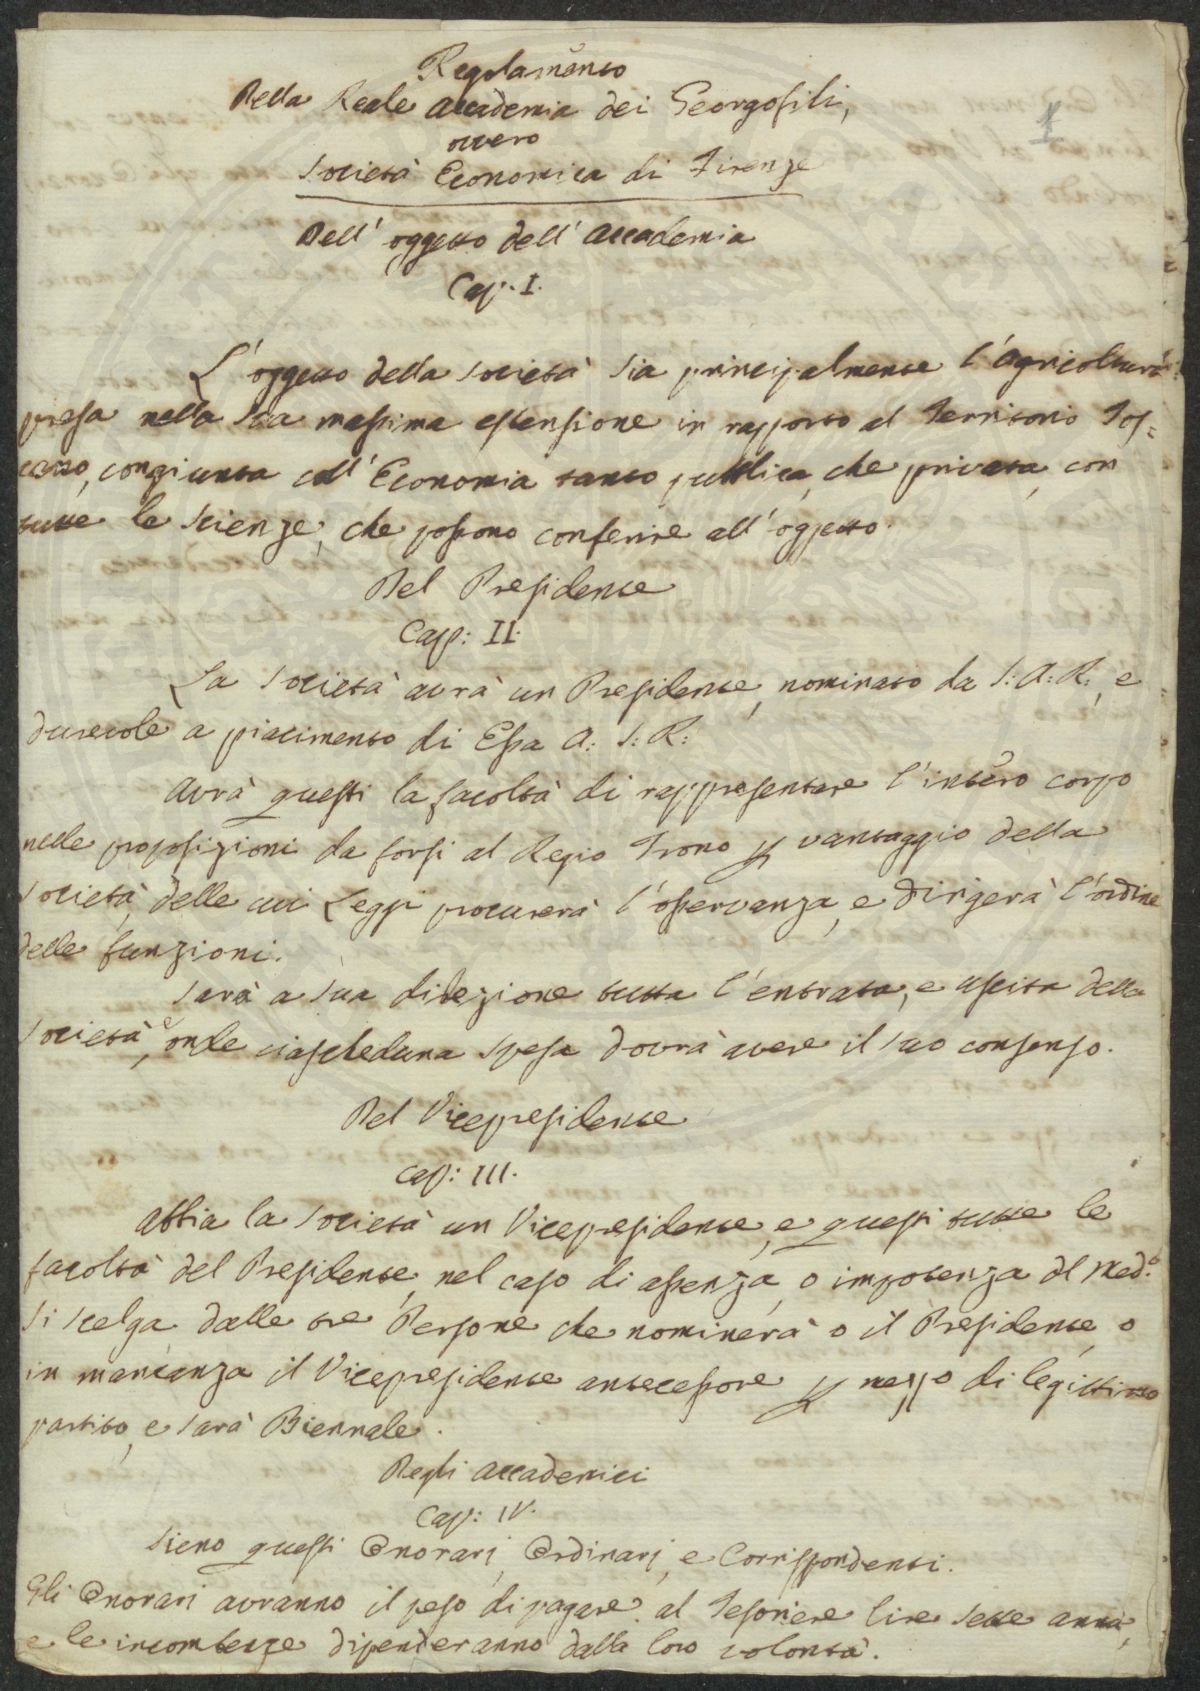 Regolamento
Della Reale Accademia dei Georgofili,
1
ovvero
Società Economica di Firenze
Dell' oggetto dell' Accademia
Cap. I.
L' oggetto della Società sia principalmente l'Agricoltura
presa nella sua massima estensione in rapporto al Territorio Tos=
cano, congiunta coll' Economia tanto pubblica, che privata, con
tutte le Scienze, che possono conferire all' oggetto.
Del Presidente
Cap: II.
La Società avrà un Presidente, nominato da S: A: R:, e
durevole a piacimento di Essa A: S: R:
Avrà questi la facoltà di rappresentare l'intero corpo
nelle proposizioni da farsi al Regio Trono p vantaggio della
Società, delle cui Leggi procurerà l'osservanza, e dirigerà l'ordine
delle funzioni.
Sarà a sua direzione tutta l'entrata, e uscita della
Società, onde ciascheduna spesa dovrà avere il suo consenso.
Del Vicepresidente
Cap: III.
Abbia la Società un Vicepresidente, e questi tutte le
facoltà del Presidente, nel caso di assenza, o impotenza del Med.o
Si scelga dalle tre Persone che nominerà o il Presidente, o
in mancanza il Vicepresidente antecessore p mezzo di legittimo
partito, e sarà Biennale.
Degli Accademici
Cap: IV.
Sieno questi Onorarj, Ordinarj, e Corrispondenti.
Gli Onorari avranno il peso di pagare al Tesoriere lire sette
e le incombenze dipenderanno dalla loro volontà.